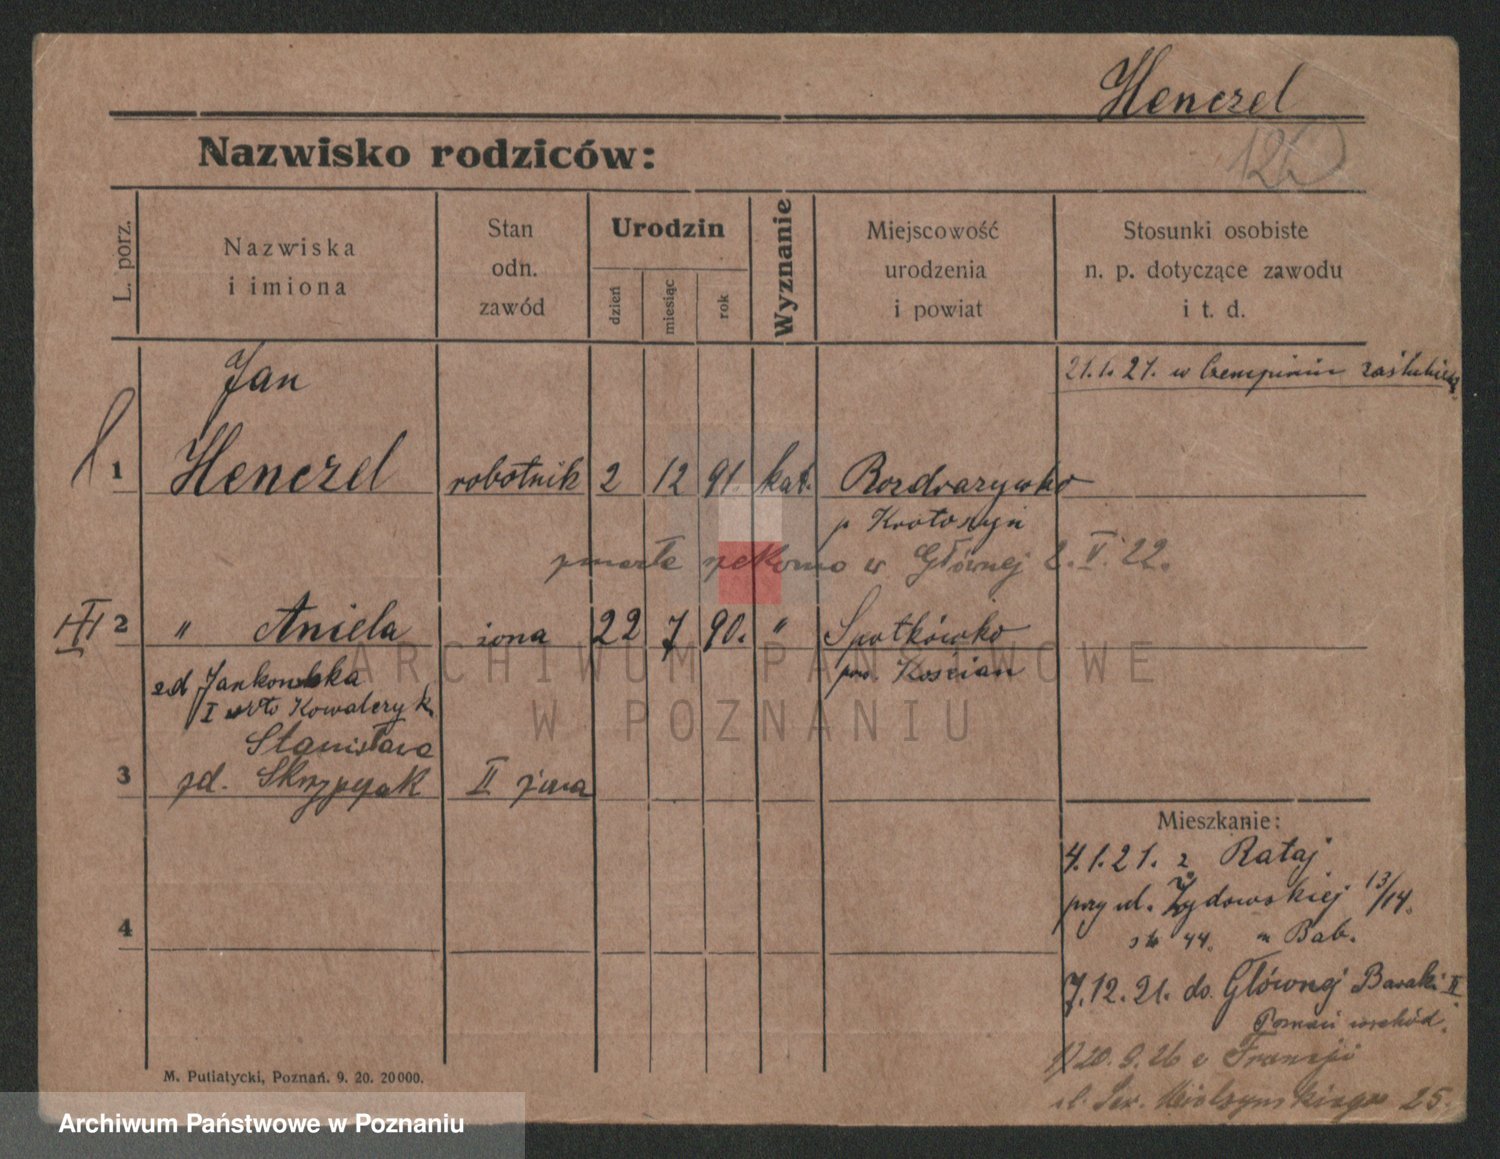 Henczel
Nazwisko rodziców:
L. porz.
Nazwiska
i imiona
Stan
odn.
zawód
Urodzin
dzień
miesiąc
rok
Wyznanie
Miejscowość
urodzenia
i powiat
Stosunki osobiste
n. p. dotyczące zawodu
i t. d.
21.1.21. w Czempiniu zaślubieni
Jan
1 Henczel robotnik 2 12 91. kat. Rozdrażewko
p Krotoszyn
zmarła w Głównej 2. V. 22.
2 " Aniela żona 22 7 90. "
pow Kościan
zd Jankowska
I Kowalczyk
Stanisława
3 zd. Skrzypczak II żona
Mieszkanie:
4.1.21. z Rataj
przy ul. Żydowskiej 13/14.
44. Bab.
4
7.12.21. do Głównej Baraki II
Poznań wschód.
20.9.26 z Francji
ul. Sew. Mielżyńskiego 25.
M. Putiatycki, Poznań. 9. 20. 20000.
ARCHIWUM PAŃSTWOWE
W POZNANIU
Archiwum Państwowe w Poznaniu